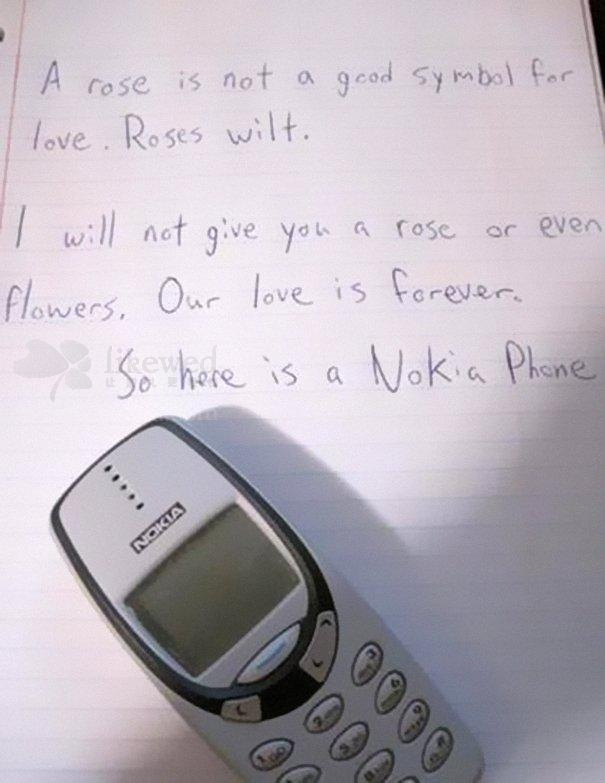 A rose is not a good symbol for
love. Roses wilt.
I will not give you a rose or even
flowers. Our love is forever.
So here is a Nokia Phone
likewed
NOKIA